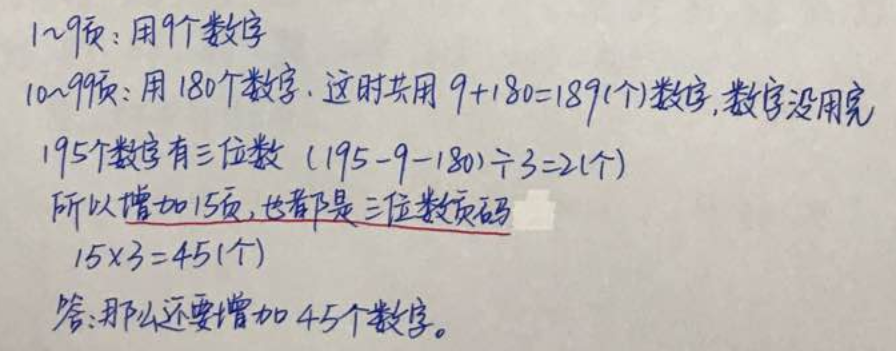 1~9页：用9个数字
10~99页：用180个数字．这时共用9+180=189(个)数字,数字没用完
195个数字有三位数 (195-9-180)÷3=2(个)
所以增加15页,也都是三位数页码
15×3=45(个)
答:那么还要增加45个数字。